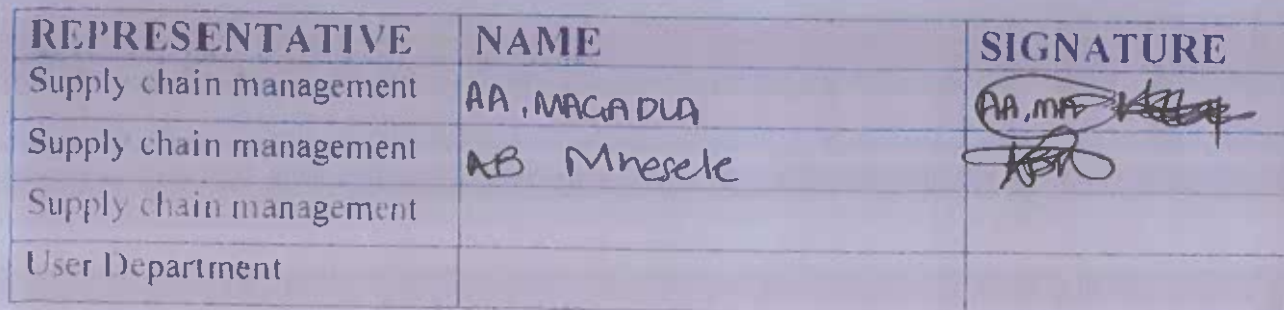 REPRESENTATIVE NAME SIGNATURE
Supply chain management AA, MAGADLA AA, MA
Supply chain management AB Mnesele
Supply chain management
User Department